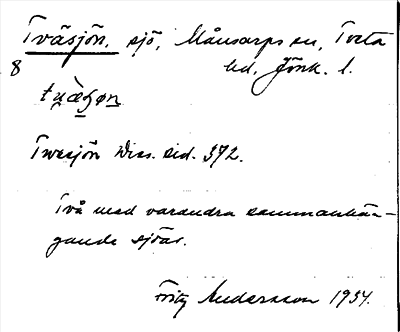 Tväsjön, sjö, Månsarps sn, Tveta
8 hd, Jönk. l.
Tvæsjön Diss. sid. 372.
Två med varandra sammanhän-
gande sjöar.
Fritz Andersson 1934.